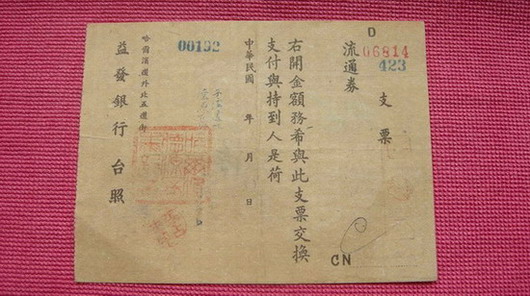 D
06814
423
支票
流通券
右開金額務希與此支票交換
支付與持到人是荷
中華民國 年 月 日
00192
益發銀行台照
哈爾濱道外北五道街
CN